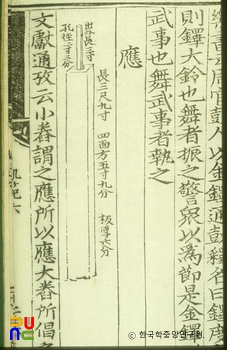 樂書云周官鼓人以金鐸通鼓釋名曰鐸度
則鐸大鈴也舞者振之警衆以爲節是金鐸
武事也舞武事者執之
應
長三尺九寸 四面方五寸九分 板厚六分
孔徑二寸三分
文獻通攷云小舂謂之應所以應大舂所倡
© 한국학중앙연구원